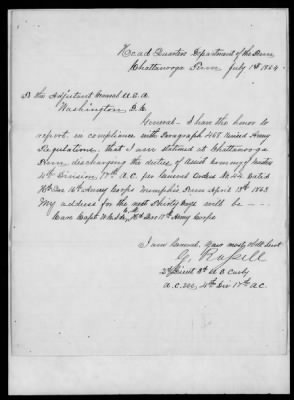 Head Quarters Department of the Tenn
Chattanooga Tenn July 1st 1864
To the Adjutant General U.S.A.
Washington D.C.
General I have the honor to
report, in compliance with Paragraph 468 Revised Army
Regulations, that I am stationed at Chattanooga
Tenn discharging the duties of Assist Comsy of Musters
4th Division 17th A.C. per General Orders No 44 Dated
Hd Qrs 16th Army Corps Memphis Tenn April 18th 1863
My address for the next thirty days will be
Care Capt
Hd Qrs 17th Army Corps
I am General Your most obdt Servt
G.
2d Lieut 3d U S Cavly
A.C.M. 4th Div 17th A.C.